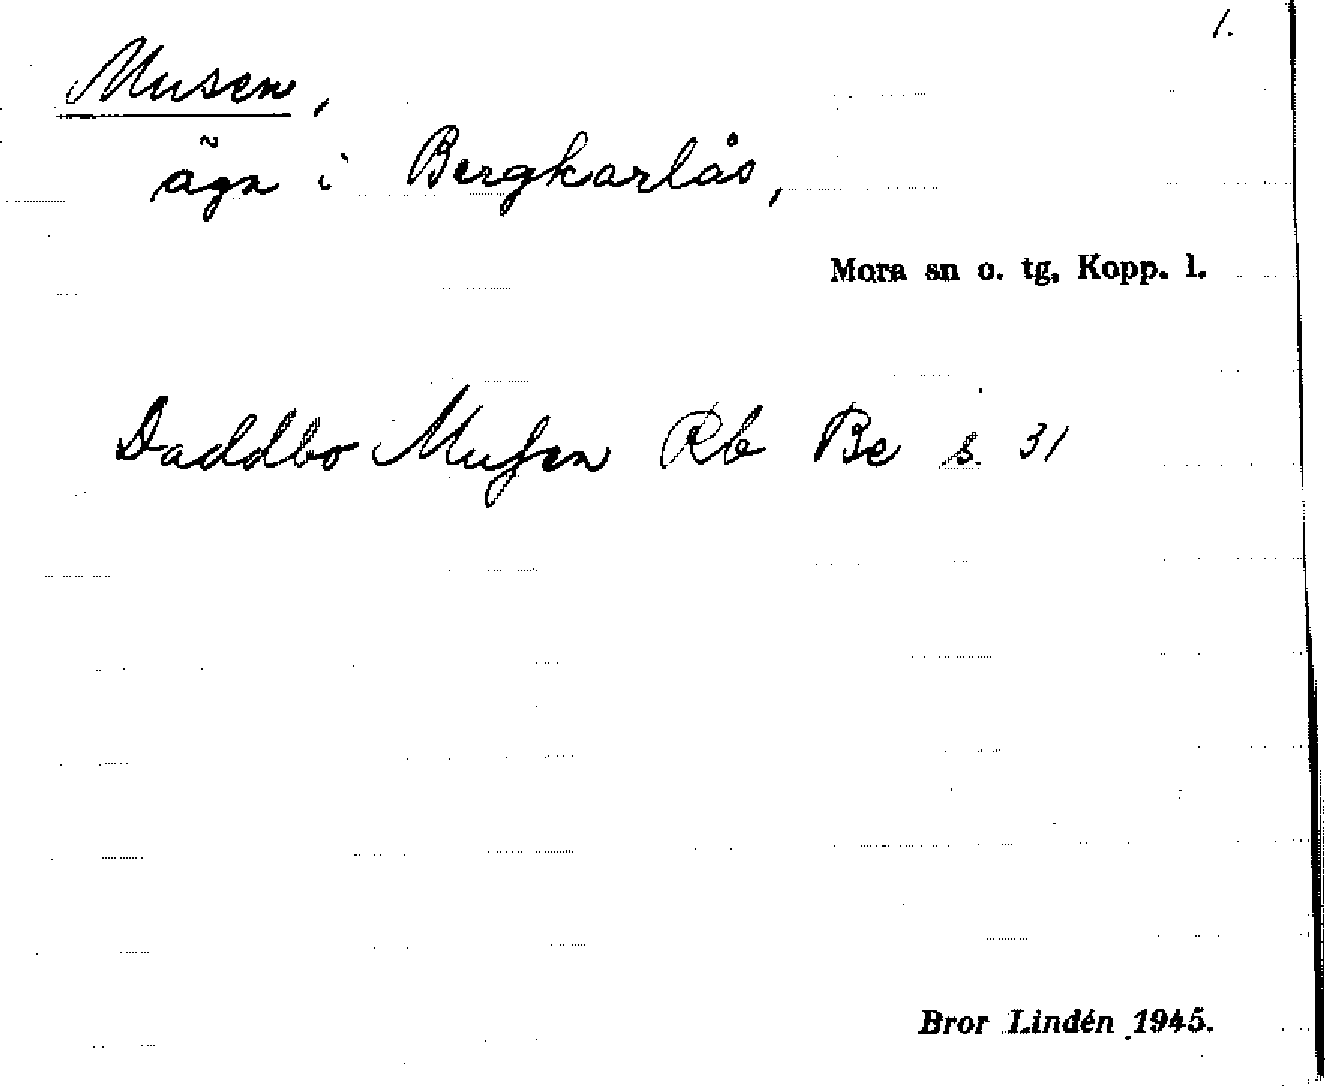 1.
Musen,
ägn i Bergkarlås,
Mora sn o. tg, Kopp. l.
Daddbo Musen Rb Be s. 31
Bror Lindén 1945.